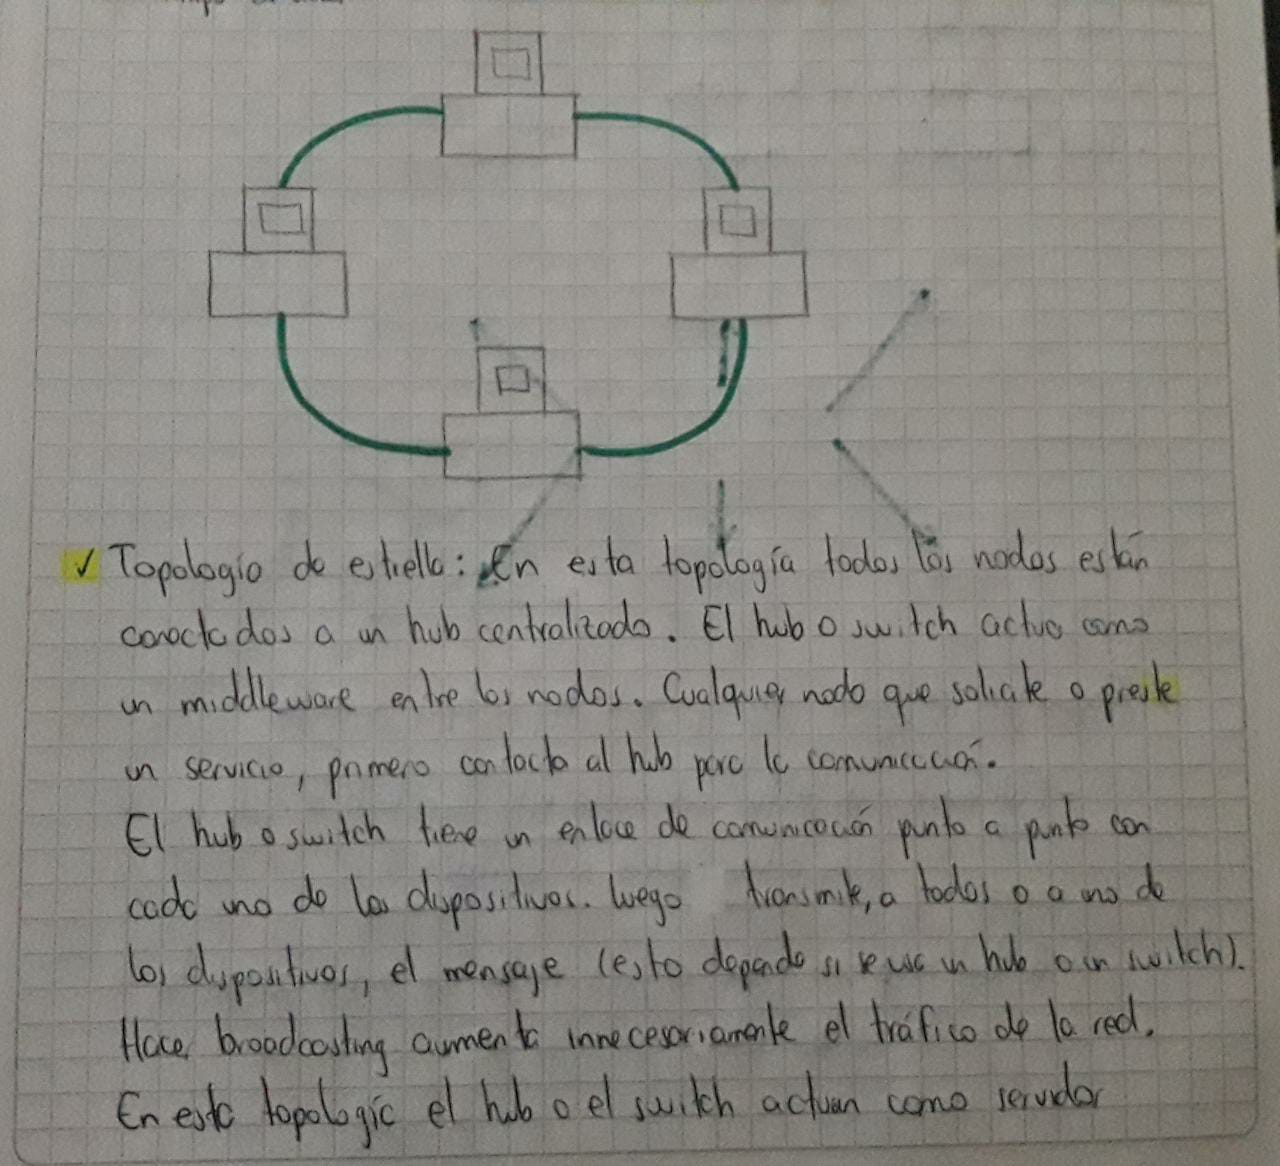 ✓ Topología de estrella: En esta topología todos los nodos están
conectados a un hub centralizado. El hub o switch actua como
un middleware entre los nodos. Cualquier nodo que solicite o preste
un servicio, primero contacta al hub para la comunicación.
El hub o switch tiene un enlace de comunicación punto a punto con
cada uno de los dispositivos. luego transmite, a todos o a uno de
los dispositivos, el mensaje (esto depende si se usa un hub o un switch).
Hace broadcasting aumenta innecesariamente el tráfico de la red.
En esta topología el hub o el switch actuan como servidor